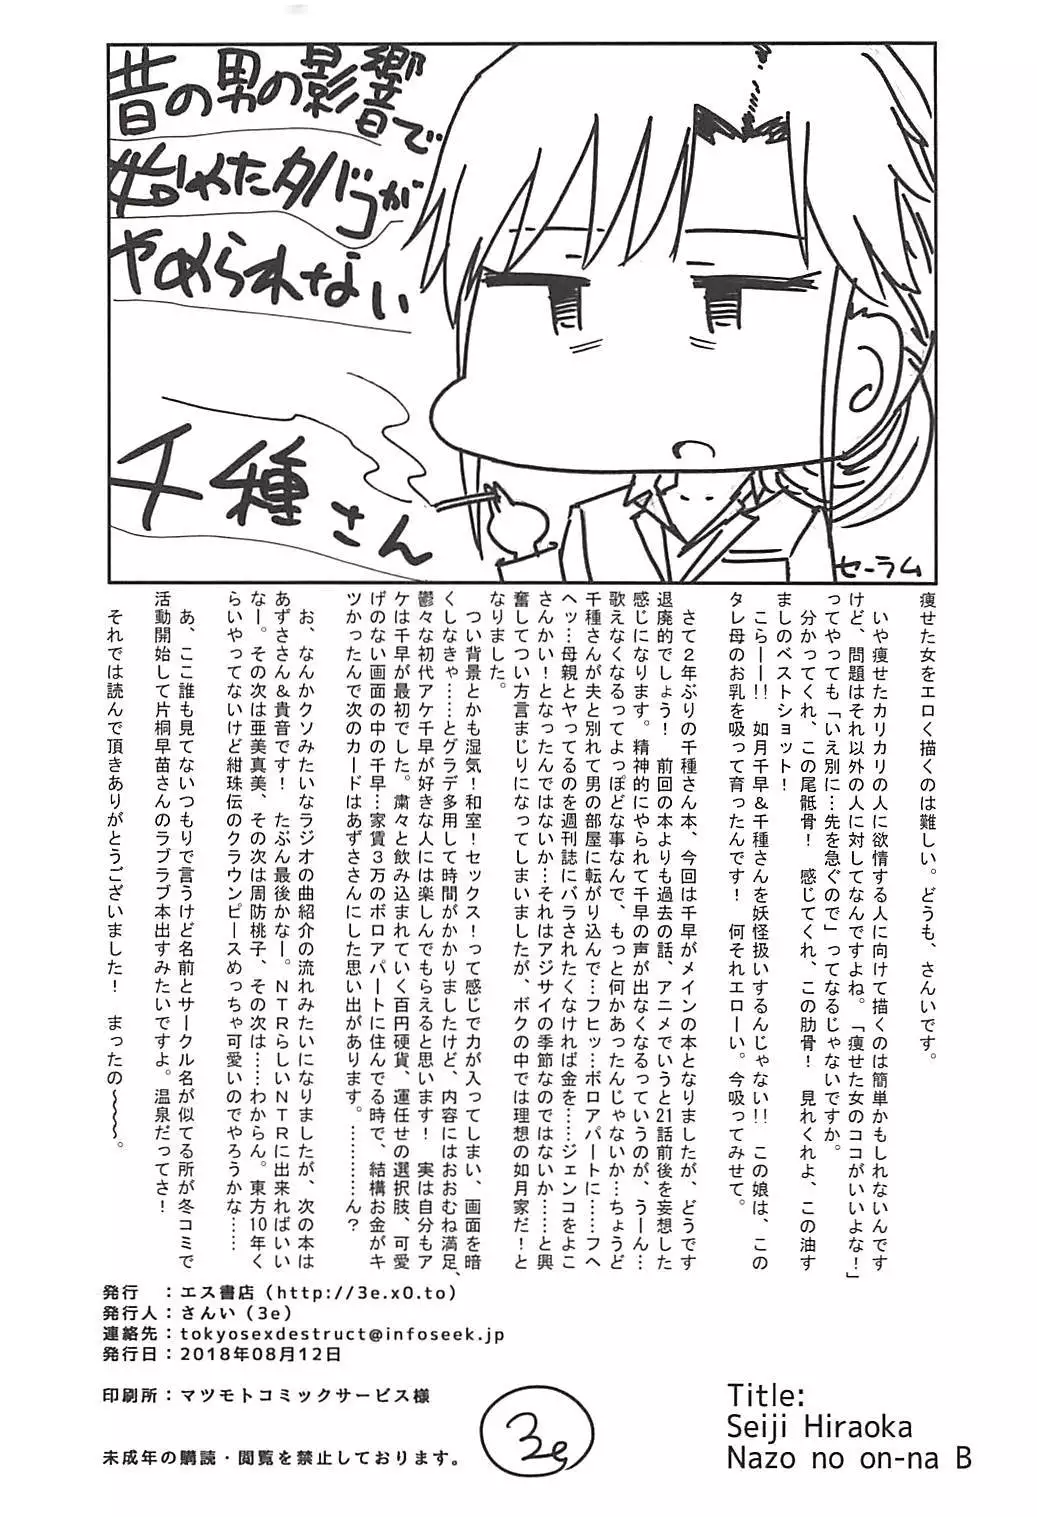 昔の男の影響で
始めたタバコが
やめられない
千種さん
セーラム
痩せた女をエロく描くのは難しい。どうも、さんいです。
いや痩せたカリカリの人に欲情する人に向けて描くのは簡単かもしれないんです
けど、問題はそれ以外の人に対してなんですよね。「痩せた女のココがいいよな!」
ってやっても「いえ別に…先を急ぐので」ってなるじゃないですか。
分かってくれ、この尾骶骨! 感じてくれ、この肋骨! 見れくれよ、この油す
ましのベストショット!
こらーー!! 如月千早&千種さんを妖怪扱いするんじゃない!! この娘は、この
タレ母のお乳を吸って育ったんです! 何それエローい。今吸ってみせて。
さて2年ぶりの千種さん本、今回は千早がメインの本となりましたが、どうです
退廃的でしょう! 前回の本よりも過去の話、アニメでいうと21話前後を妄想した
感じになります。精神的にやられて千早の声が出なくなるっていうのが、うーん…
歌えなくなるってよっぽどな事なんで、もっと何かあったんじゃないか…ちょうど
千種さんが夫と別れて男の部屋に転がり込んで…フヒッ…ボロアパートに……フヘ
ヘッ…母親とヤッてるのを週刊誌にバラされたくなければ金を……ジェンコをよこ
さんかい!となったんではないか…それはアジサイの季節なのではないか……と興
奮してつい方言まじりになってしまいましたが、ボクの中では理想の如月家だ!と
なりました。
つい背景とかも湿気!和室!セックス!って感じで力が入ってしまい、画面を暗
くしなきゃ……とグラデ多用して時間がかかりましたけど、内容にはおおむね満足、
鬱々な初代アケ千早が好きな人には楽しんでもらえると思います! 実は自分もア
ケは千早が最初でした。粛々と飲み込まれていく百円硬貨、運任せの選択肢、可愛
げのない画面の中の千早…家賃3万のボロアパートに住んでる時で、結構お金がキ
ツかったんで次のカードはあずささんにした思い出があります。…………ん?
お、なんかクソみたいなラジオの曲紹介の流れみたいになりましたが、次の本は
あずささん&貴音です! たぶん最後かなー。NTRらしいNTRに出来ればいい
なー。その次は亜美真美、その次は周防桃子、その次は……わからん。東方10年く
らいやってないけど紺珠伝のクラウンピースめっちゃ可愛いのでやろうかな……
あ、ここ誰も見てないいつもりで言うけど名前とサークル名が似てる所が冬コミで
活動開始して片桐早苗さんのラブラブ本出すみたいですよ。温泉だってさ!
それでは読んで頂きありがとうございました! まったの〜〜〜〜。
発行 :エス書店(http://3e.x0.to)
発行人:さんい(3e)
連絡先:tokyosexdestruct@infoseek.jp
発行日:2018年08月12日
印刷所:マツモトコミックサービス様
未成年の購読・閲覧を禁止しております。
3e
Title:
Seiji Hiraoka
Nazo no on-na B